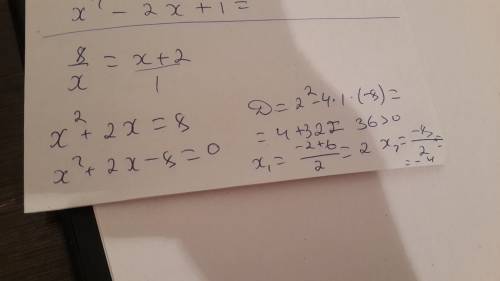 x² - 2x + 1 =
8/x = x+2/1
x² + 2x = 8
x² + 2x - 8 = 0
D = 2² - 4·1·(-8) =
= 4 + 32 = 36 > 0
x₁ = -2+6/2 = 2 x₂ = -8/2 =
= -4